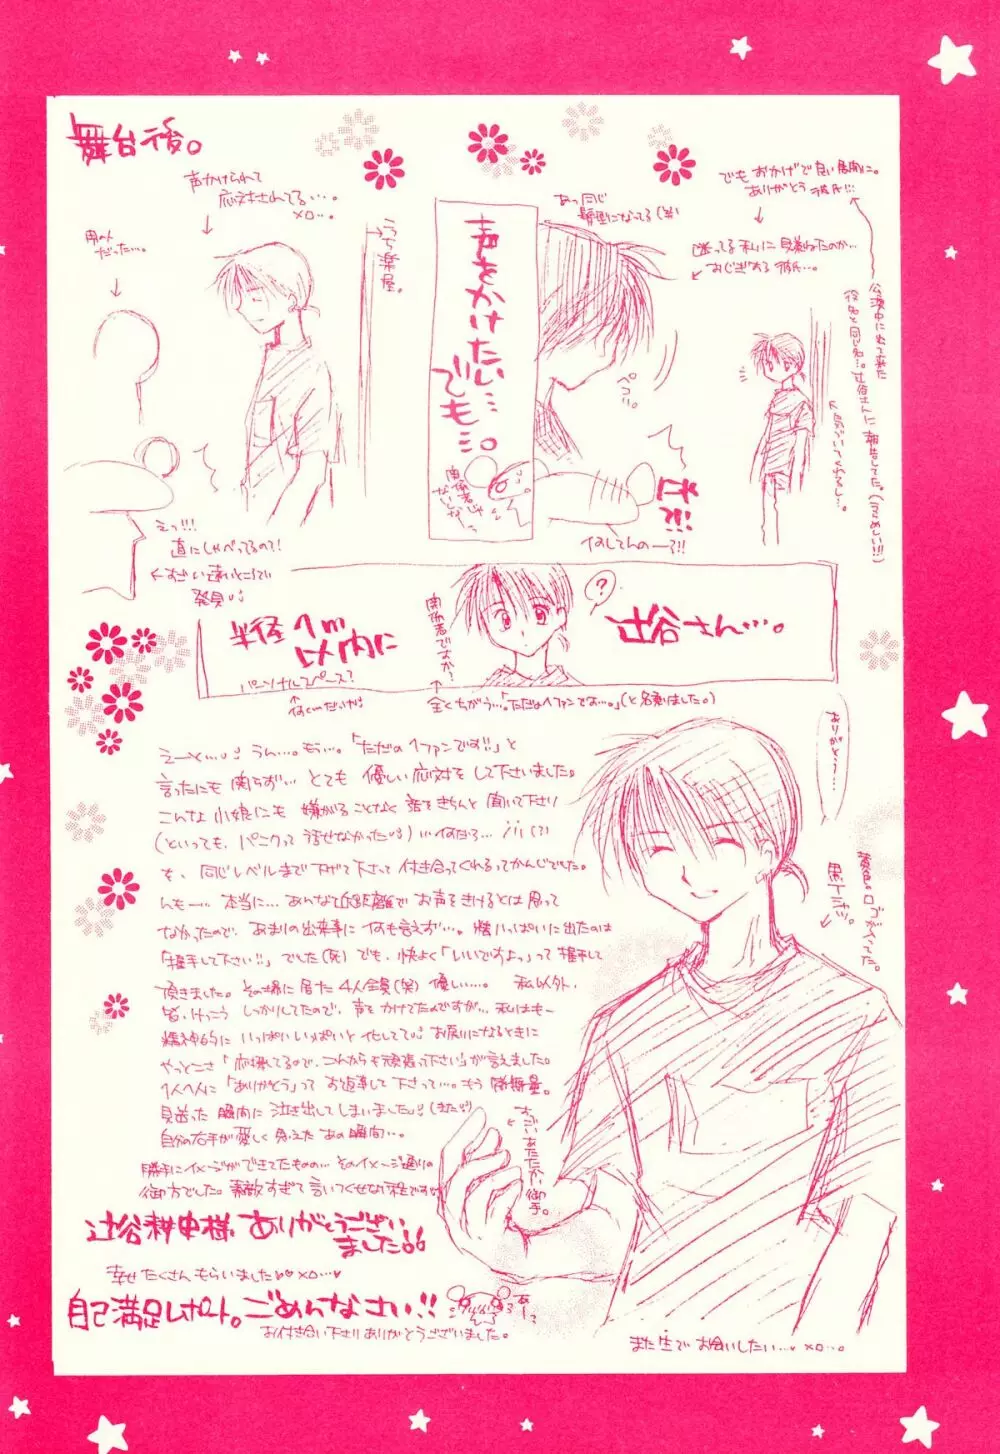 舞台後。
声かけられて
応対されてる…。
男の人
だった…。
うち楽屋。
声をかけたい…
でも…。
あっ同じ
髪型になってる(笑)
でも おかげで良い展開に。
ありがとう 彼氏!!!
迷ってる 私に 見兼ねたのか…
おじぎする 彼氏…。
公演中に来て来た
役名と同じ名…。辻谷さんに 報告してた。(うらめしい!!)
ペコッ。
関係者じゃ
ないしなーっ
なにしてんのーっ!!
えっ!!!
直にしゃべってるの?!
すごい遠いところで
発見
半径1m
以内に
パーソナルスペース?
関係者ですか?
?
辻谷さん…。
全くちがう…。「ただの1ファンです…。」(と名乗りました。)
えーと…。うん…。もぅ…。「ただの1ファンです!!」と
言ったにも関らず… とても 優しい応対をして下さいました。
こんな 小娘にも 嫌がることなく 話をきちんと聞いて下さり
(といっても、パニクって話せなかった) …何だろ…
も、同じレベルまで下げて下さって付き合ってくれるってかんじでした。
んもー… 本当に… あんな近距離で お声をきけるとは思って
なかったので、あまりの出来事に何も言えず…。精いっぱいに出たのは
「握手して下さい!!」でした(死) でも、快よく「いいですよ。」って握手して
頂きました。その場に居た 4人全員(笑) 優しい…。 私以外、
皆、けっこう しっかりしてたので、声をかけてたんですが… 私はもー
精神的に いっぱいいっぱいと化してて お戻りになるときに
やっとこさ「応援してるので、これからも頑張って下さい」が言えました。
1人1人に「ありがとう」って お返事して下さって…。もう 感無量。
見送った 瞬間に 泣き出してしまいました
自分の右手が愛しく 思えた あの瞬間…。
勝手にイメージができてたものの… そのイメージ通りの
御方でした。素敵すぎて言いつくせない
辻谷耕史様 ありがとうござい
ました
幸せ たくさん もらいました
自己満足レポート。ごめんなさい!!
お付き合い下さり ありがとうございました。
ありがとう…。
黒Tシャツ。
黄色のロゴが入ってた。
すっごい あたたかい御手。
また生で お会いしたい…